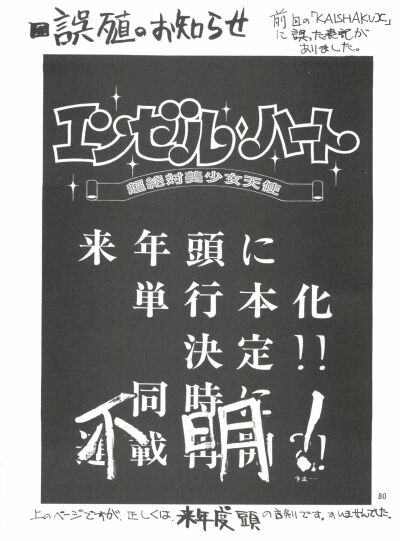 誤殖のお知らせ
前回の「KAISHAKUX」
に誤った表記が
ありました。
エンゼル・ハート
超絶対美少女天使
来年頭に
単行本化
決定!!
同時に
連載再開?!
不明!
80
上のページですが、正しくは、来年度頭の です。すいませんでした。